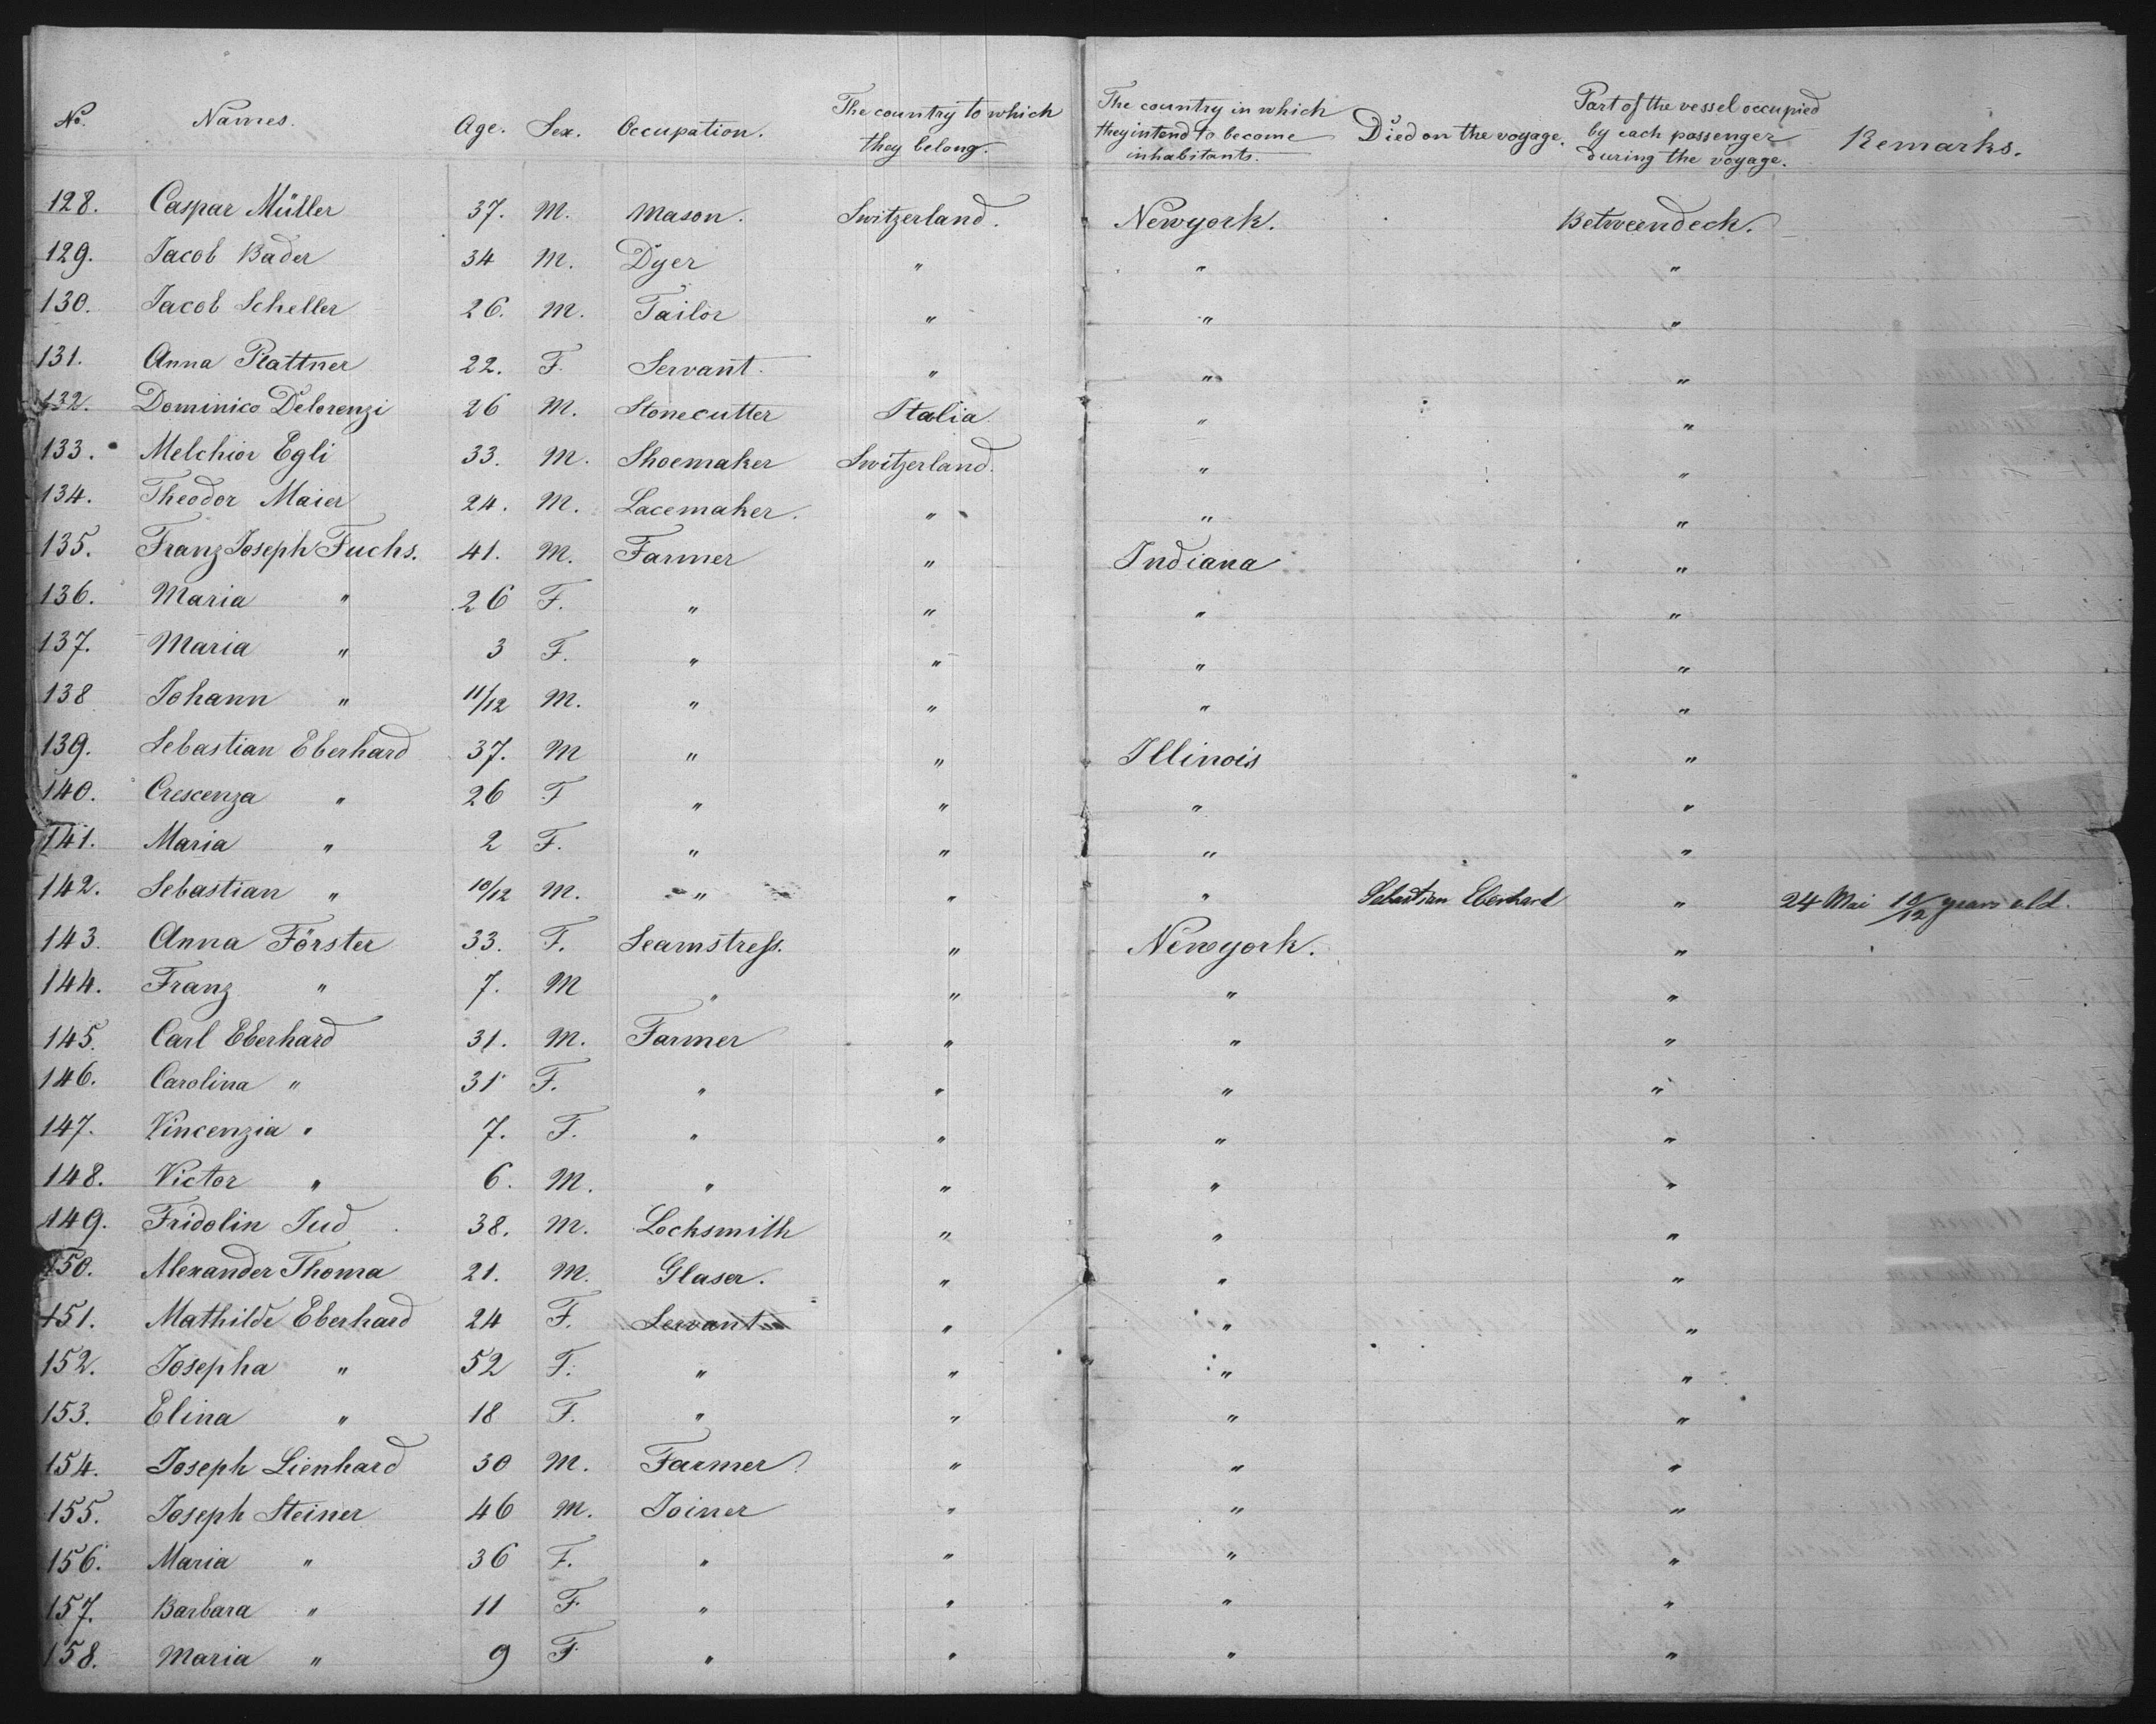 No. Names. Age. Sex. Occupation. The country to which they belong. The country in which they intend to become inhabitants. Died on the voyage. Part of the vessel occupied by each passenger during the voyage. Remarks.
128. Caspar Müller 37. M. Mason. Switzerland. Newyork. Betweendeck.
129. Jacob Bader 34 M. Dyer " " "
130. Jacob Scheller 26. M. Tailor " " "
131. Anna Plattner 22. F. Servant. " " "
132. Dominico Delorenzi 26 M. Stonecutter Italia " "
133. Melchior Egli 33. M. Shoemaker Switzerland. " "
134. Theodor Maier 24. M. Lacemaker. " " "
135. Franz Joseph Fuchs. 41. M. Farmer " Indiana "
136. Maria " 26 F. " " " "
137. Maria " 3 F. " " " "
138 Johann " 11/12 M. " " " "
139. Sebastian Eberhard 37. M " " Illinois "
140. Crescenza " 26 F " " " "
141. Maria " 2 F. " " " "
142. Sebastian " 10/12 M. " " " Sebastian Eberhard " 24 Mai 10/12 years old.
143. Anna Förster 33. F. Seamstress. " Newyork. "
144. Franz " 7. M " " " "
145. Carl Eberhard 31. M. Farmer " " "
146. Carolina " 31 F. " " " "
147. Vincenzia " 7. F. " " " "
148. Victor " 6. M. " " " "
149. Fridolin Jud 38. M. Locksmith " " "
150. Alexander Thoma 21. M. Glaser. " " "
151. Mathilde Eberhard 24 F. Servant " " "
152. Josepha " 52 F. " " " "
153. Elina " 18 F. " " " "
154. Joseph Lienhard 30 M. Farmer " " "
155. Joseph Steiner 46 M. Joiner " " "
156. Maria " 36 F. " " " "
157. Barbara " 11 F " " " "
158. Maria " 9 F " " " "